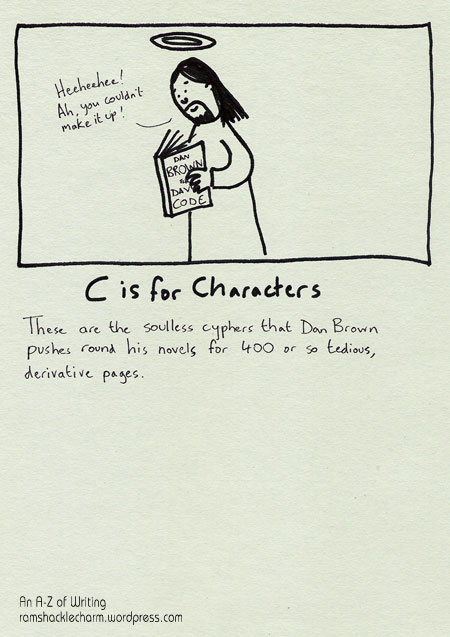 Heeheehee!
Ah, you couldn't
make it up!
DAN
BROWN
DAV
CODE
C is for Characters
These are the soulless cyphers that Dan Brown
pushes round his novels for 400 or so tedious,
derivative pages.
An A-Z of Writing
ramshacklecharm.wordpress.com